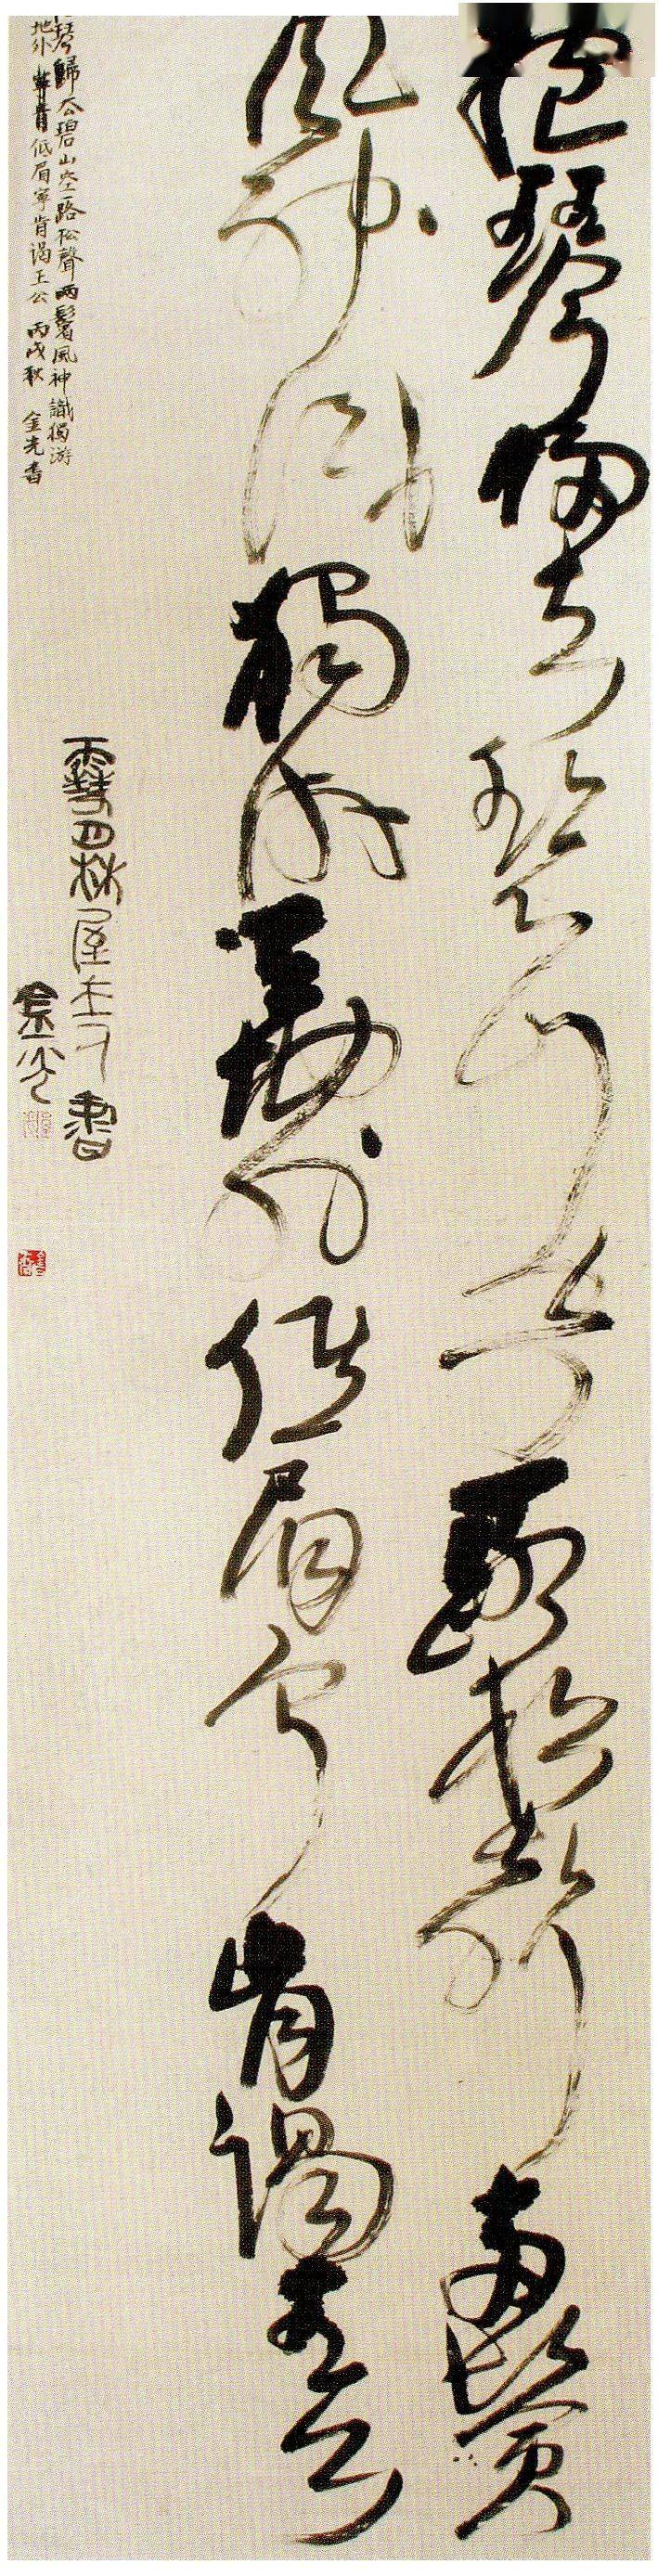 抱琴歸去碧山空一路松聲兩鬢
風神識獨游天地外低眉寧肯謁王公
琴歸去碧山空一路松聲兩鬢風神識獨游
地外低眉寧肯謁王公 丙戌秋 金光書
屋主又書
金光